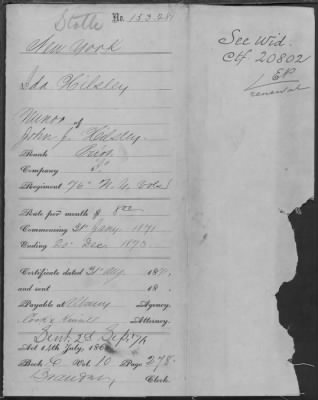 No. 153.281
New York
Ida Hilsley
Minor of
John J. Hilsley
Rank Priv.
Company
Regiment 76" N. Y. Vols
Rate per month $ 8 00
Commencing 31 Jany 1871
Ending 20 Dec. 1873.
Certificate dated 31 Aug 187
and sent 18 .
Payable at Albany Agency.
Attorney.
Sent 2d Sept 71
Act 14th July, 186
Book C Vol. 10 Page 278.
Clerk.
See Wid.
Ctf. 20802
EP
renewal